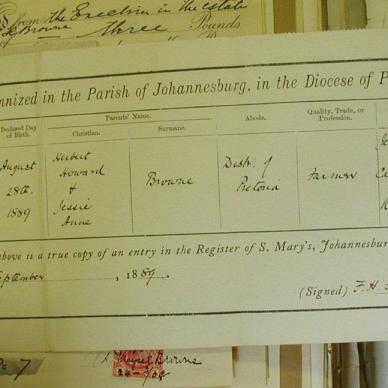 from the Executors in the Estate
Browne three Pounds
nnized in the Parish of Johannesburg, in the Diocese of P
Declared Day of Birth.
Parents' Name.
Christian.
Surname.
Abode.
Quality, Trade, or Profession.
August
28th.
1889
Herbert
Howard
&
Jessie
Anne
Browne
Distr. of
Pretoria
Farmer
above is a true copy of an entry in the Register of S. Mary's, Johannesbur
September , 1889.
(Signed) F. H.
Browne